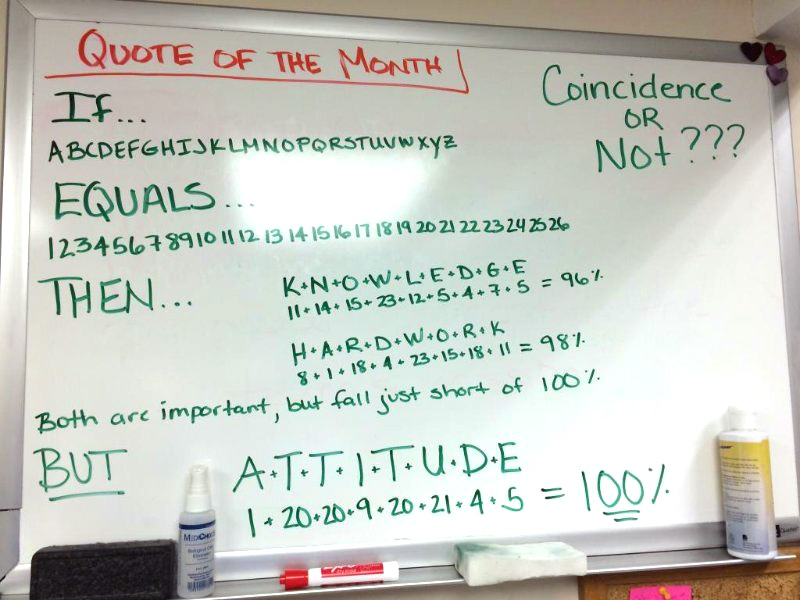 QUOTE OF THE MONTH
Coincidence
OR
Not ???
If...
ABCDEFGHIJKLMNOPQRSTUVWXYZ
EQUALS...
1 2 3 4 5 6 7 8 9 10 11 12 13 14 15 16 17 18 19 20 21 22 23 24 25 26
THEN...
K+N+O+W+L+E+D+G+E
11+14+15+23+12+5+4+7+5 = 96%
H+A+R+D+W+O+R+K
8+1+18+4+23+15+18+11 = 98%
Both are important, but fall just short of 100%
BUT
A+T+T+I+T+U+D+E
1+20+20+9+20+21+4+5 = 100%
EXPO